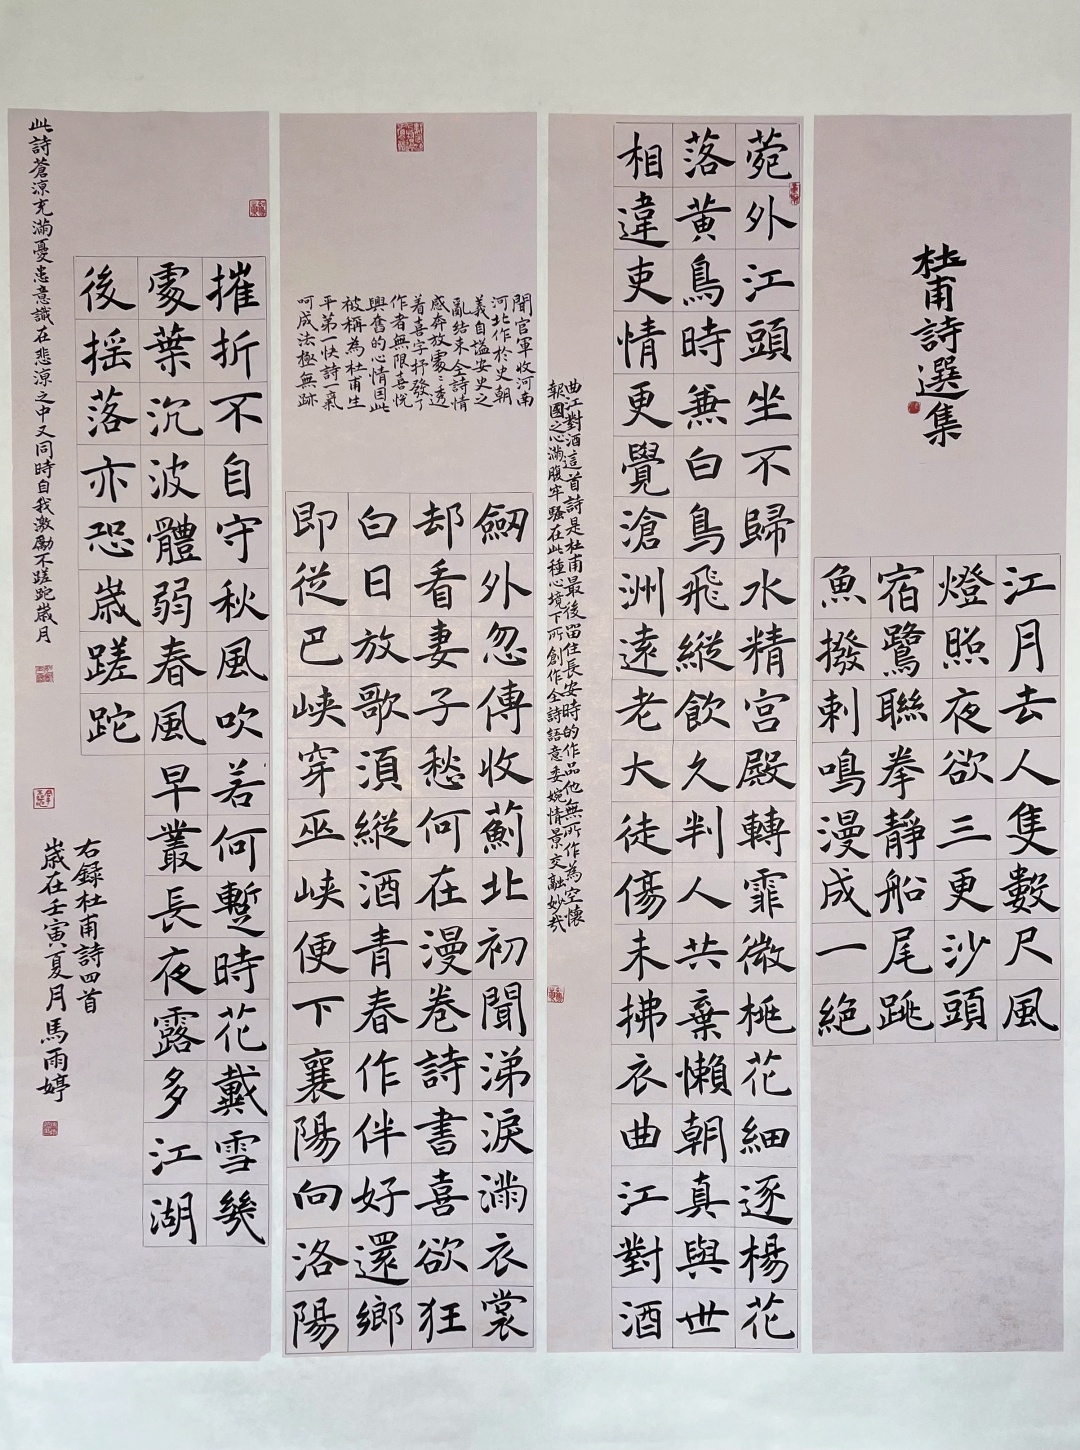 杜甫詩選集
江月去人隻數尺風
燈照夜欲三更沙頭
宿鷺聯拳靜船尾跳
魚撥剌鳴漫成一絶
菀外江頭坐不歸水精宮殿轉霏微桃花細逐楊花
落黃鳥時兼白鳥飛縱飲久判人共棄懶朝真與世
相違吏情更覺滄洲遠老大徒傷未拂衣曲江對酒
曲江對酒這首詩是杜甫最後留住長安時的作品他無所作為空懷
報國之心滿腹牢騷在此種心境下所創作全詩語意委婉情景交融妙哉
劒外忽傳收薊北初聞涕淚滿衣裳
却看妻子愁何在漫卷詩書喜欲狂
白日放歌須縱酒青春作伴好還鄉
即從巴峽穿巫峽便下襄陽向洛陽
聞官軍收河南
河北作於史朝
義自謚安史之
亂結束全詩情
感奔放處〻透
着喜字抒發了
作者無限喜悅
興奮的心情因此
被稱為杜甫生
平第一快詩一氣
呵成法極無跡
摧折不自守秋風吹若何暫時花戴雪幾
處葉沉波體弱春風早叢長夜露多江湖
後搖落亦恐歲蹉跎
此詩蒼涼充滿憂患意識在悲涼之中又同時自我激勵不蹉跎歲月
右録杜甫詩四首
歲在壬寅夏月馬雨婷